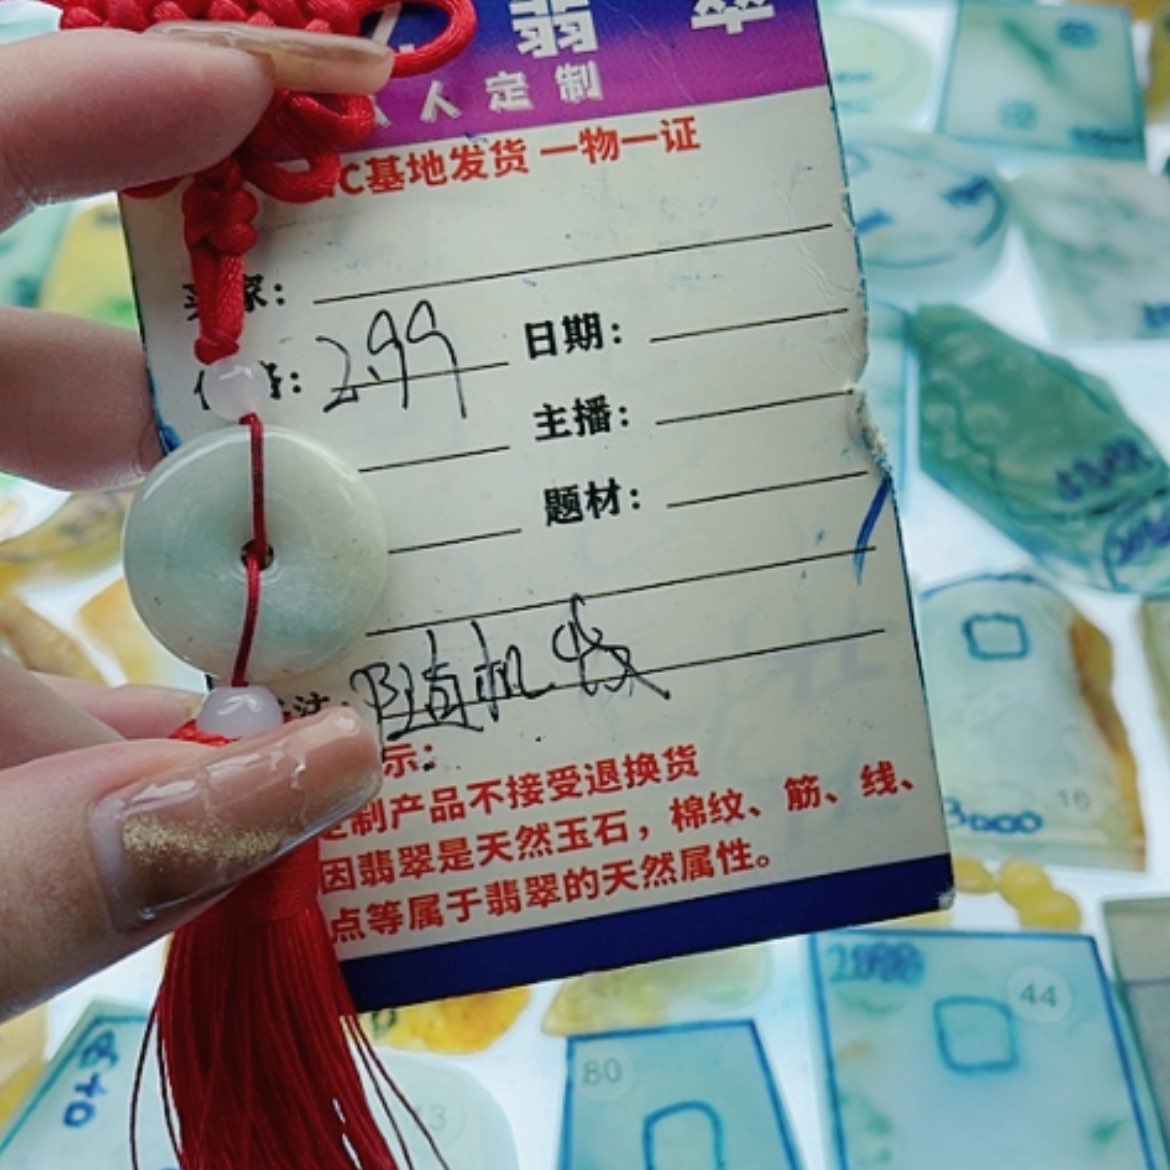 翡
人定制
C基地发货 一物一证
家：
2.99
日期：
主播：
题材：
随机发
示：
制产品不接受退换货
因翡翠是天然玉石，棉纹、筋、线、
点等属于翡翠的天然属性。
16
3000
44
80